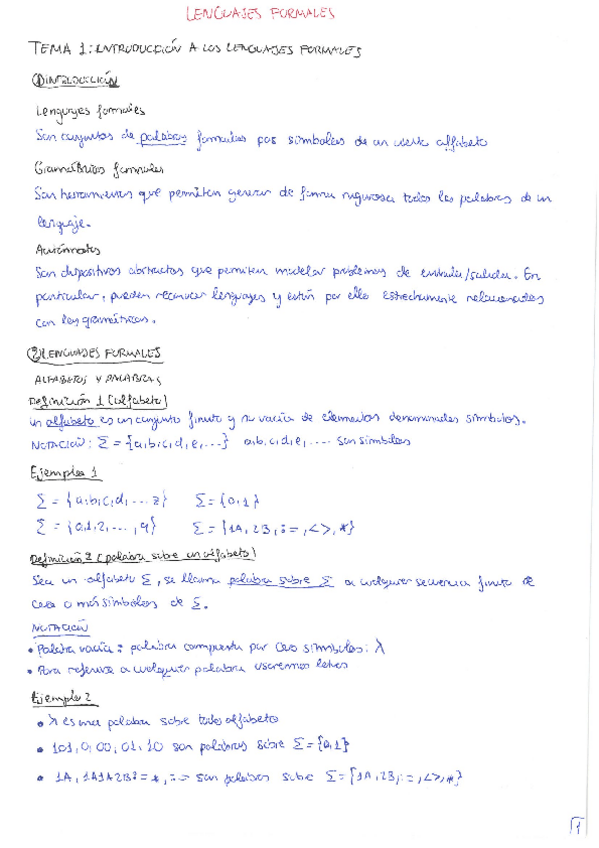 LENGUAJES FORMALES
TEMA 1: INTRODUCCIÓN A LOS LENGUAJES FORMALES
① INTRODUCCIÓN
Lenguajes formales
Son conjuntos de palabras formadas por símbolos de un cierto alfabeto
Gramáticas formales
Son herramientas que permiten generar de forma rigurosa todas las palabras de un
lenguaje.
Autómatas
Son dispositivos abstractos que permiten modelar problemas de entrada/salida. En
particular, pueden reconocer lenguajes y están por ello estrechamente relacionados
con las gramáticas.
② LENGUAJES FORMALES
ALFABETOS Y PALABRAS
Definición 1 (alfabeto)
Un alfabeto es un conjunto finito y no vacío de elementos denominados símbolos.
NOTACIÓN: Σ = {a,b,c,d,e,...} a,b,c,d,e,.... son símbolos
Ejemplo 1
Σ = {a,b,c,d,...z} Σ = {0,1}
Σ = {0,1,2,...,9} Σ = {1A,2B,:=,<>,*}
Definición 2 (palabra sobre un alfabeto)
Sea un alfabeto Σ, se llama palabra sobre Σ a cualquier secuencia finita de
cero o más símbolos de Σ.
NOTACIÓN
• Palabra vacía: palabra compuesta por cero símbolos: λ
• Para referirse a cualquier palabra usaremos letras
Ejemplo 2
• λ es una palabra sobre todo alfabeto
• 101, 0, 00, 01, 10 son palabras sobre Σ={0,1}
• 1A, 1A1A2B:=*, := son palabras sobre Σ={1A,2B,:=,<>,*}
1